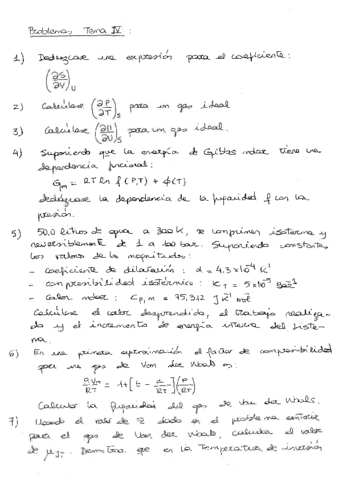 Problemas Tema IV:
1) Dedúzcase una expresión para el coeficiente:
(∂S/∂V)U
2) Calcúlese (∂P/∂T)S para un gas ideal
3) Calcúlese (∂U/∂V)S para un gas ideal.
4) Suponiendo que la energía de Gibbs molar tiene una
dependencia funcional:
Gm = RT ln f(P,T) + φ(T)
dedúzcase la dependencia de la fugacidad f con la
presión.
5) 50.0 litros de agua a 300 K, se comprimen isoterma y
reversiblemente de 1 a 100 bar. Suponiendo constantes
los valores de las magnitudes:
- coeficiente de dilatación: α = 4.3×10⁻⁴ K⁻¹
- compresibilidad isotérmica: KT = 5×10⁻⁵ bar⁻¹
- calor molar: CP,m = 75,312 J K⁻¹ mol⁻¹
Calcúlese el calor desprendido, el trabajo realiza-
do y el incremento de energía interna del siste-
ma.
6) En una primera aproximación el factor de compresibilidad
para un gas de Van der Waals es:
PVm/RT = 1+[b - a/RT](P/RT)
Calcular la fugacidad del gas de Van der Waals.
7) Usando el valor de Z dado en el problema anterior
para el gas de Van der Waals, calcula el valor
de μJT. Demostrar que en la temperatura de inversión